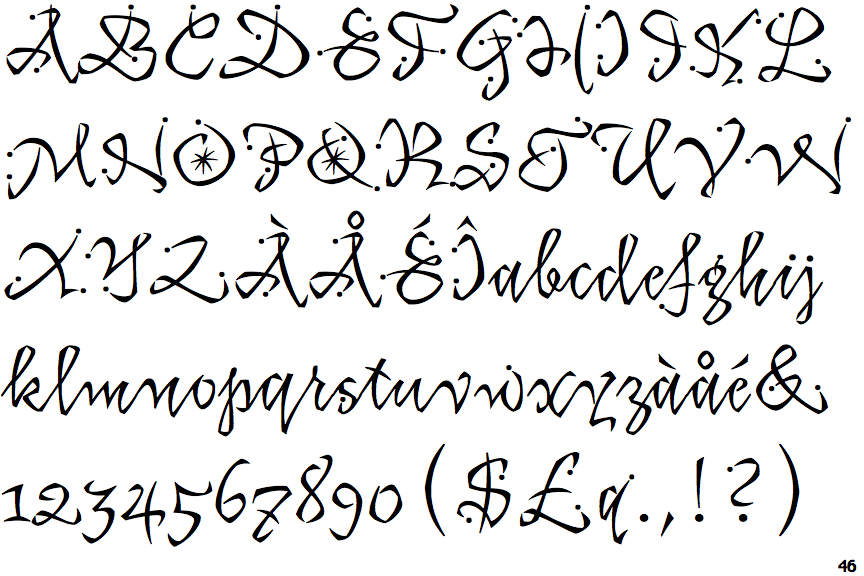 ABCDEFGHIJKL
MNOPQRSTUVW
XYZÀÅÉÎabcdefghij
klmnopqrstuvwxyzàåé&
1234567890($£.,!?)
46